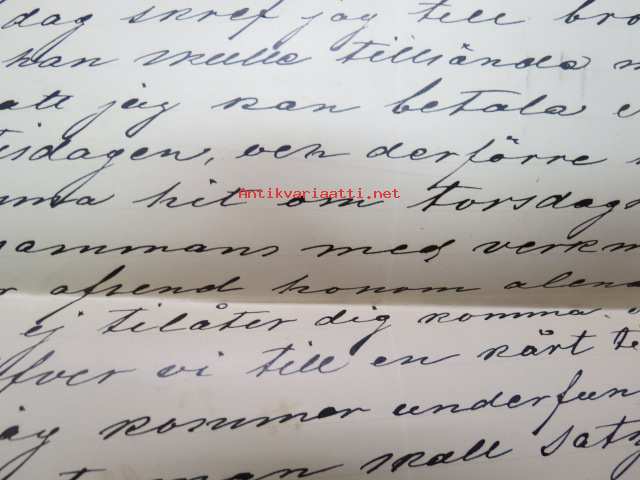 dag skref jag till bro
han skulle tillsända m
att jag kan betala e
isdagen, och derförre
ma hit om torsdagn
Antikvariaatti.net
sammans med verkm
r afsend honom alena
ej tilåter dig komma.
fver vi till en kärt te
jag kommer underfun
man skall saty